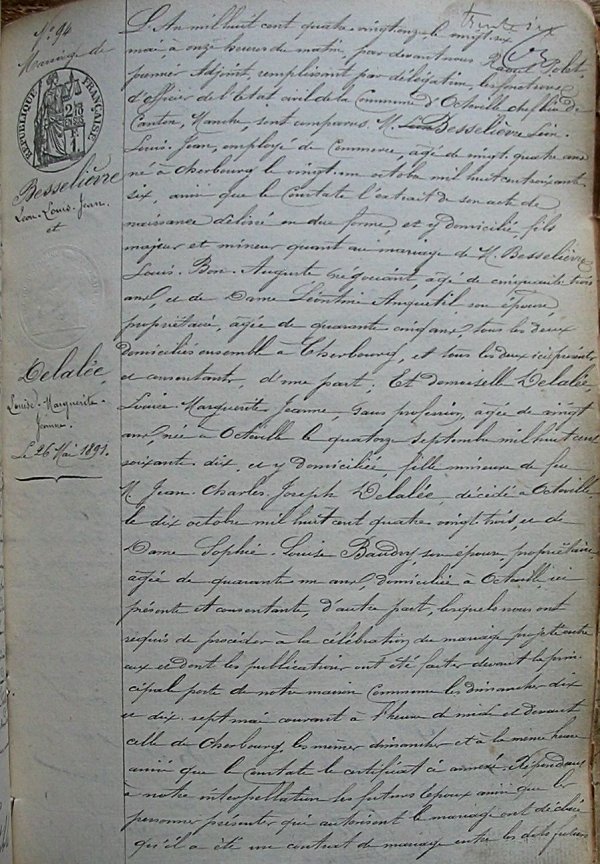 trente six
N° 94
Mariage de
RÉPUBLIQUE FRANÇAISE
Besselièvre
Léon-Louis-Jean.
et
Delalée,
Louise-Marguerite-
Jeanne.
Le 26 Mai 1891.
L'An mil huit cent quatre vingt onze le vingt six
mai, à onze heures du matin, par devant nous
premier Adjoint, remplissant par délégation, les fonctions
d'officier de l'Etat civil de la Commune d'Octeville chef lieu de
Canton, Manche, sont comparus M. Besselièvre Léon-
Louis-Jean, employé de Commerce, âgé de vingt quatre ans
né à Cherbourg le vingt-un octobre mil huit cent soixante-
six, ainsi que le constate l'extrait de son acte de
naissance délivré en due forme, et y domicilié, fils
majeur et mineur quant au mariage de M. Besselièvre
Louis-Bon-Auguste négociant, âgé de cinquante trois
ans, et de Dame Léontine Anquetil, son épouse,
propriétaire, âgée de quarante cinq ans, tous les deux
domiciliés ensemble à Cherbourg, et tous les deux ici présents
et consentants, d'une part. Et demoiselle Delalée
Louise-Marguerite-Jeanne, sans profession, âgée de vingt
ans, née à Octeville le quatorze septembre mil huit cent
soixante-dix, et y domiciliée, fille mineure de feu
M. Jean-Charles-Joseph Delalée, décédé à Octeville
le dix octobre mil huit cent quatre vingt trois, et de
Dame Sophie-Louise Baudry, son épouse, propriétaire
âgée de quarante un ans, domiciliée à Octeville, ici
présente et consentante, d'autre part, lesquels nous ont
requis de procéder à la célébration du mariage projeté entre
eux et dont les publications ont été faites devant la prin-
cipale porte de notre maison Commune les dimanches dix
et dix-sept mai courant à l'heure de midi et devant
celle de Cherbourg, les mêmes dimanches et à la même heure
ainsi que le constate le certificat ci annexé. Répondant
à notre interpellation les futurs époux ainsi que les
personnes présentes qui autorisent le mariage ont déclaré
qu'il a été un contrat de mariage entre les dits futurs